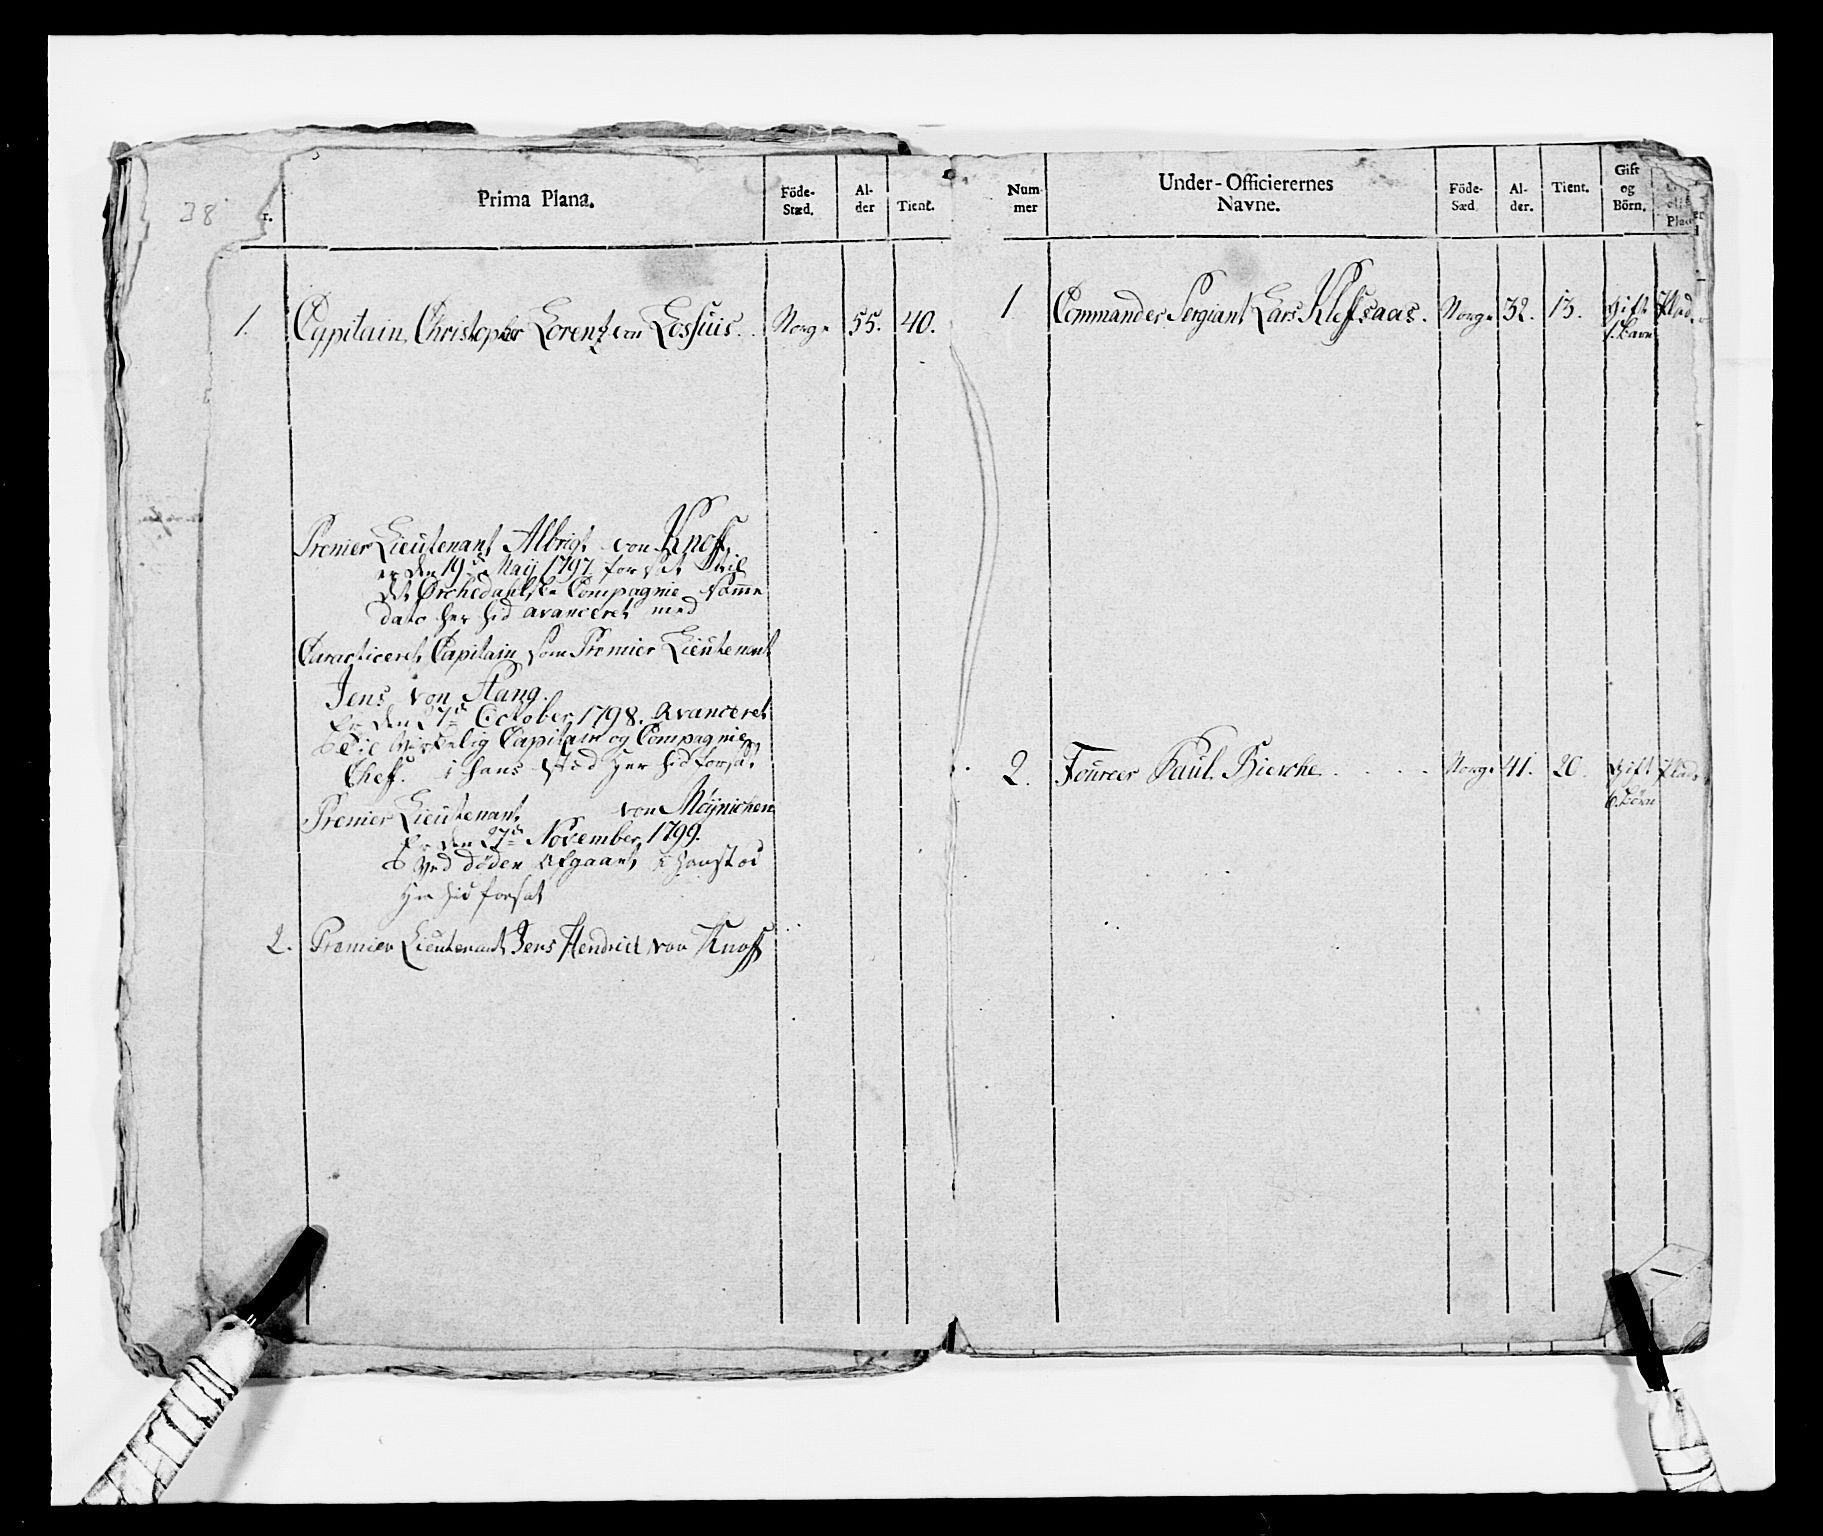 28
r.
Prima Plana.
Föde-
Stæd.
Al-
der
Tient.
1.
Capitain Christopher Lorentz von Loshuis.
Norge
55.
40.
Premier Lieutenant Albrigt von Knoff,
er den 19de Maij 1797 forsat til
det Ørchedahlske Compagnie, samme
dato her hid avanceret med
Caracticeret Capitain som Premier Lieutenant
Jens von Stang.
Er den 27de October 1798. avanceret
til virkelig Capitain og Compagnie
Chef. i hans sted her hid forsat
Premier Lieutenant von Møynichen
Er den 27de November 1799.
ved døden afgaaet, i hans sted
her hid forsat
2. Premier Lieutenant Jens Hendrich von Knoff
Num-
mer
Under-Officierernes
Navne.
Föde-
Sæd
Al-
der.
Tient.
Gift
og
Börn.
Plads
1
Commander Sergiant Lars Kleffsaas.
Norge
32.
13.
Gift
1. barn
Plads
2.
Foureer Paul Biesche
Norge
41.
20.
Gift
6 börn
Plads